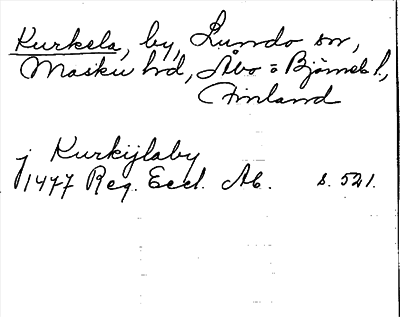 Kurkela, by, Lundo sn,
Masku hd, Åbo = Björneb l.,
Finland
j Kurkijlaby
1477 Reg. Eccl. Ab. s. 521.